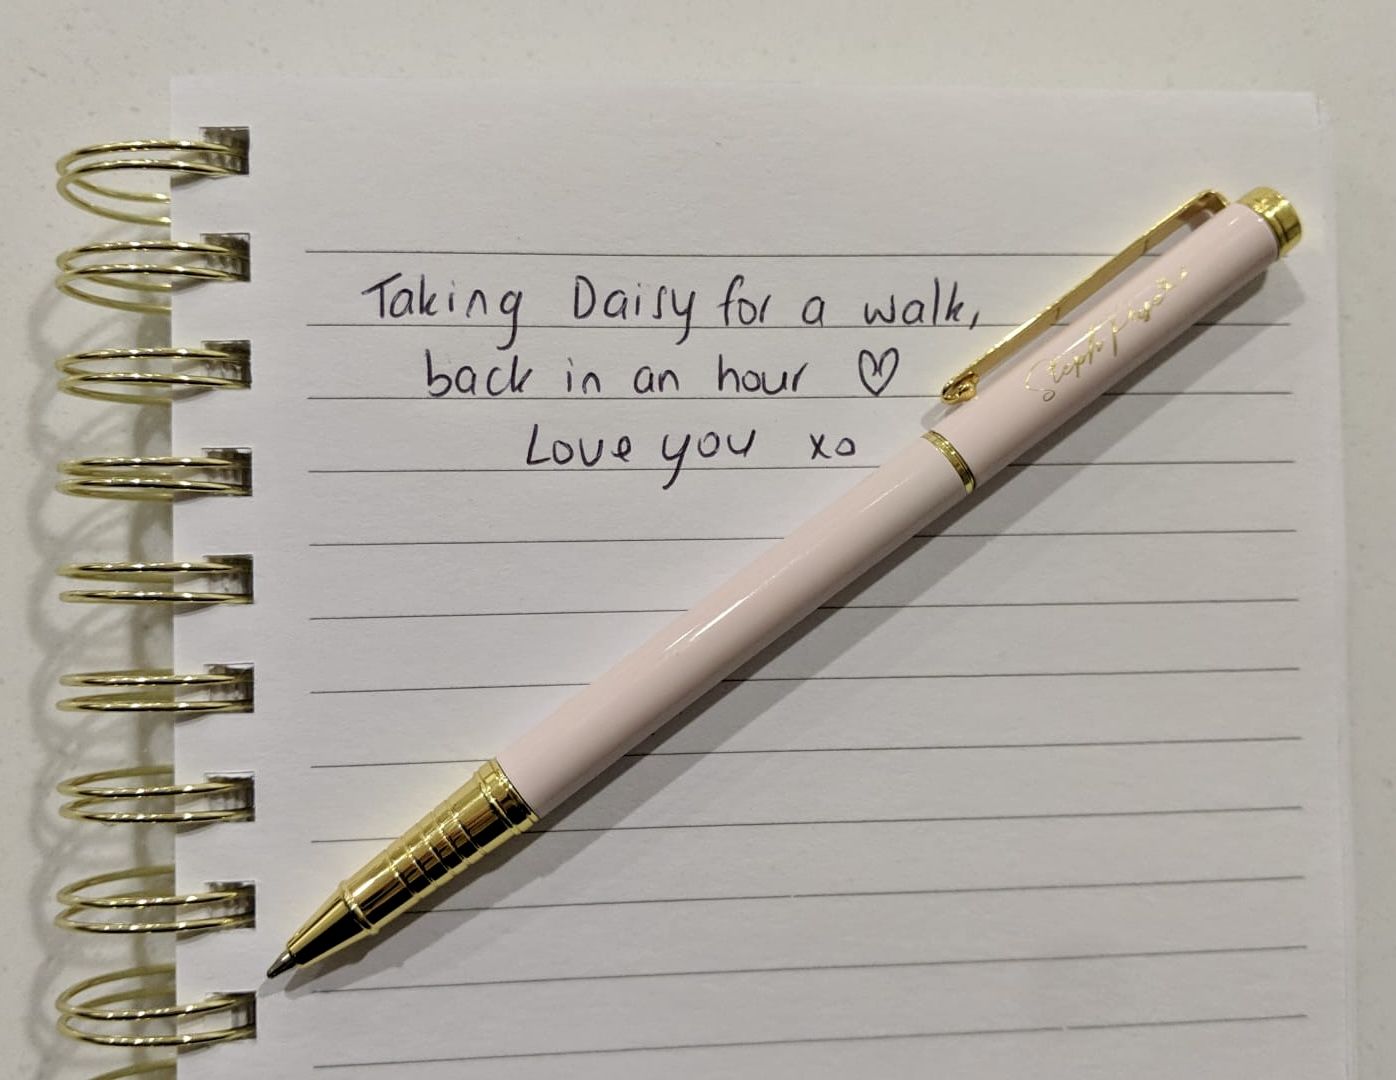 Taking Daisy for a walk,
back in an hour ♡
Love you xo
Steph